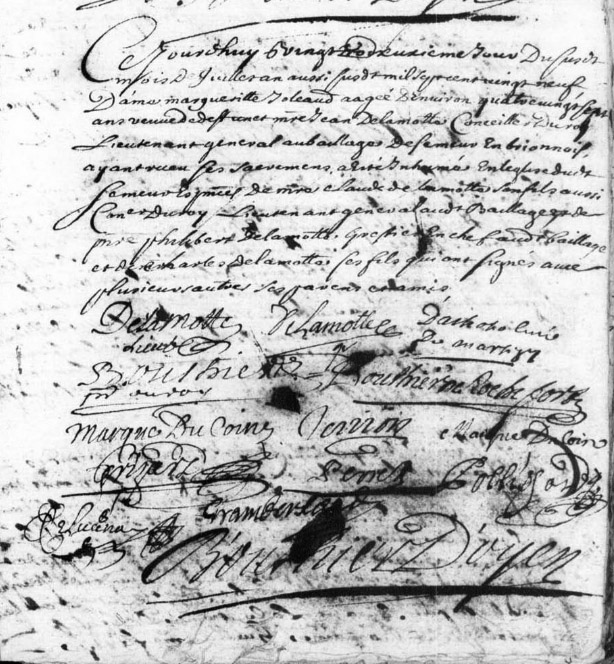 Ce Jourdhuy vingt deuxieme Jour du susdt
mois de Juillet an aussi susdt mil sept cent vingt neuf
Dame margueritte aagee denviron quatre vingt sept
ans veuve de deffunct mre Jean Delamotte Conceiller du roy
Lieutenant general au bailliage de semeur En brionnois
ayant receu ses sacremens a Eté Inhumée En leglise dudt
semeur Es pnces de mre claude de lamotte son fils aussi
Coner Du roy Lieutenant general audt Bailliage et de
mre philibert delamotte greffier En chef audt bailliage
et de charles delamotte ses fils qui ont signes avec
plusieurs autres ses parens et amis
Delamotte Delamotte
De martigny
Bouthier Bouthier De Rochefort
pr du roy
marque Du Coin Terrion Jacque Du Coin
Perret
Bouthier Doyen